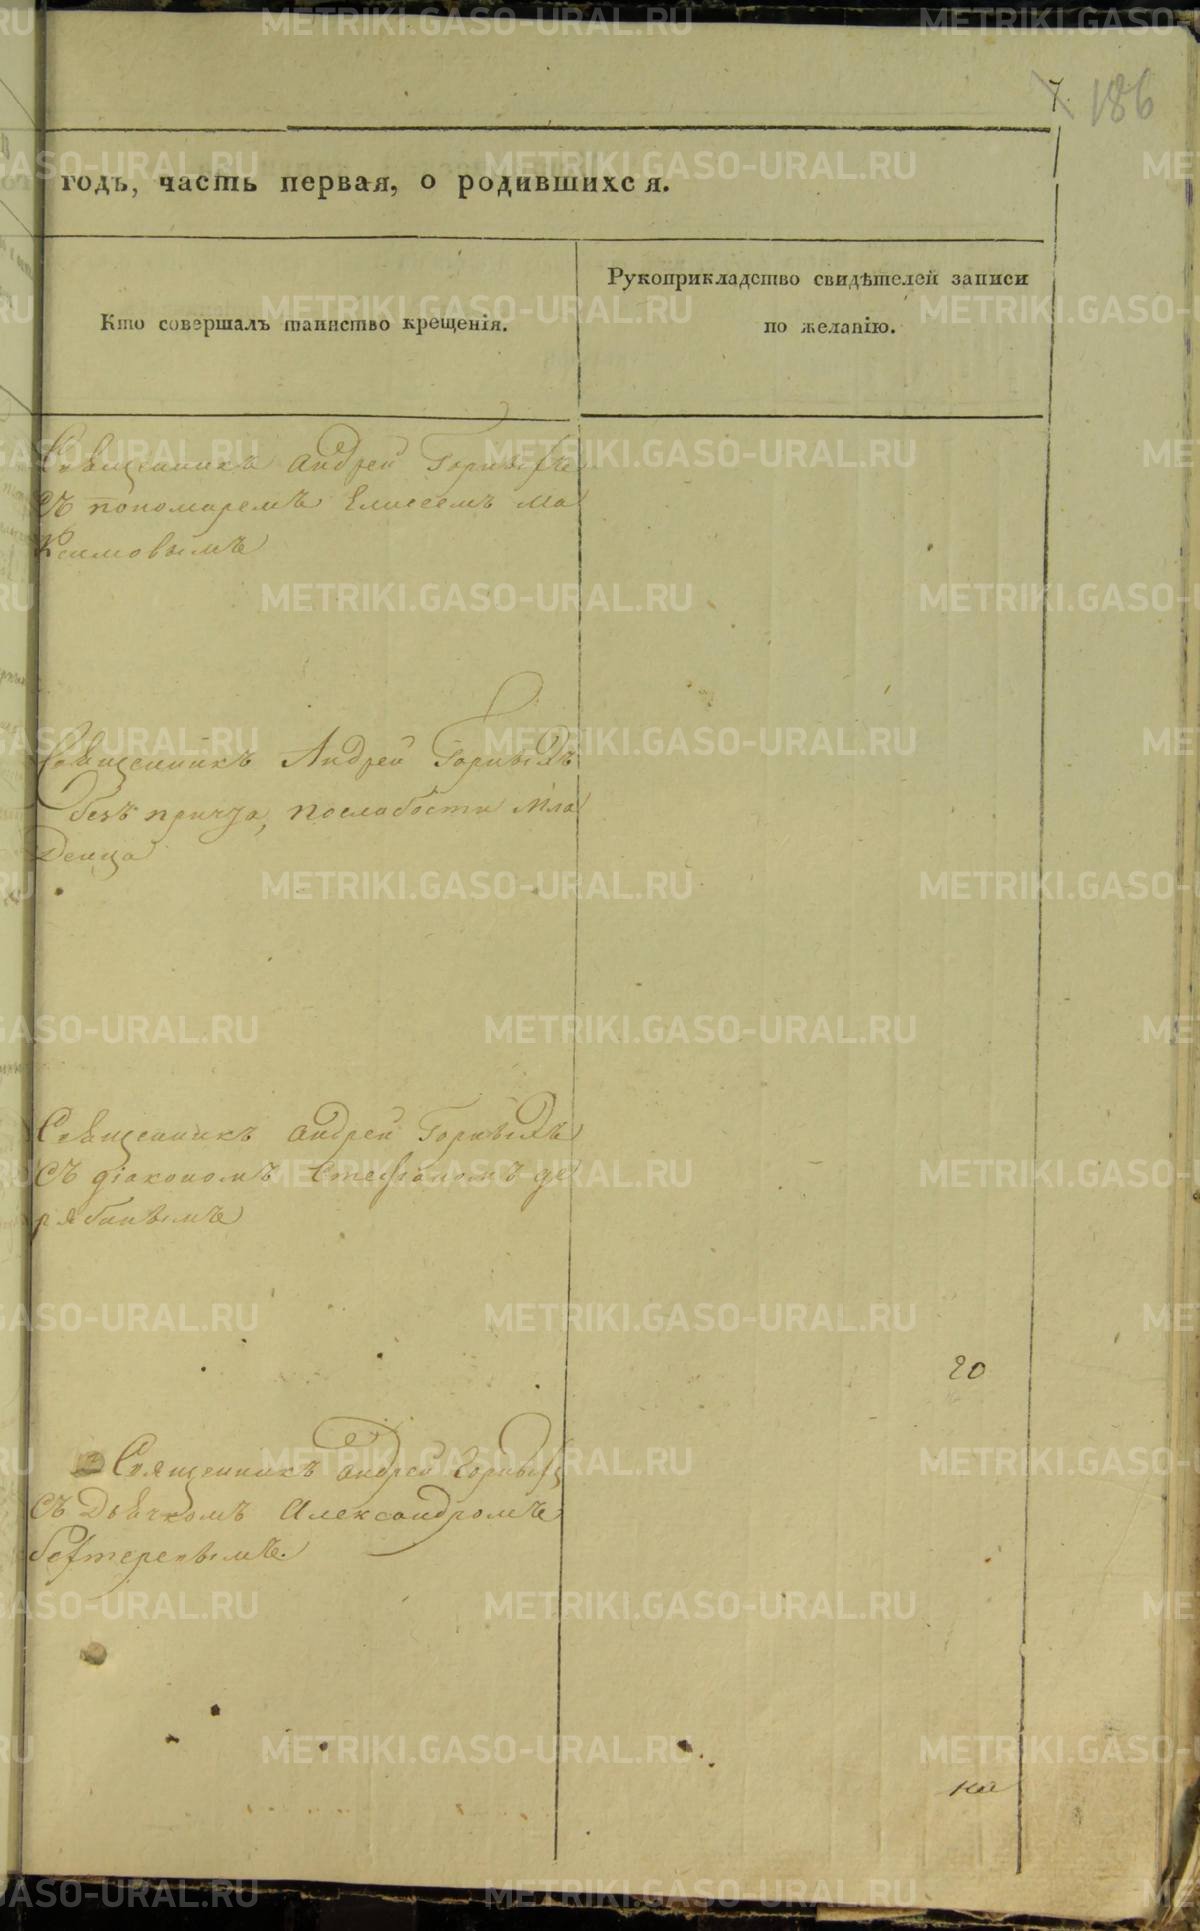 7. 186
годъ, часть первая, о родившихся.
Кто совершалъ таинство крещенія.
Рукоприкладство свидѣтелей записи
по желанію.
Священникъ Андрей Горныхъ
съ пономаремъ Елисеемъ Ма
ксимовымъ
Священникъ Андрей Горныхъ
безъ причта, послабости мла
денца
Священникъ Андрей Горныхъ
съ діакономъ Стефаномъ де
рябинымъ
20
Священникъ Андрей Горныхъ
съ Дьячкомъ Александромъ
на
METRIKI.GASO-URAL.RU